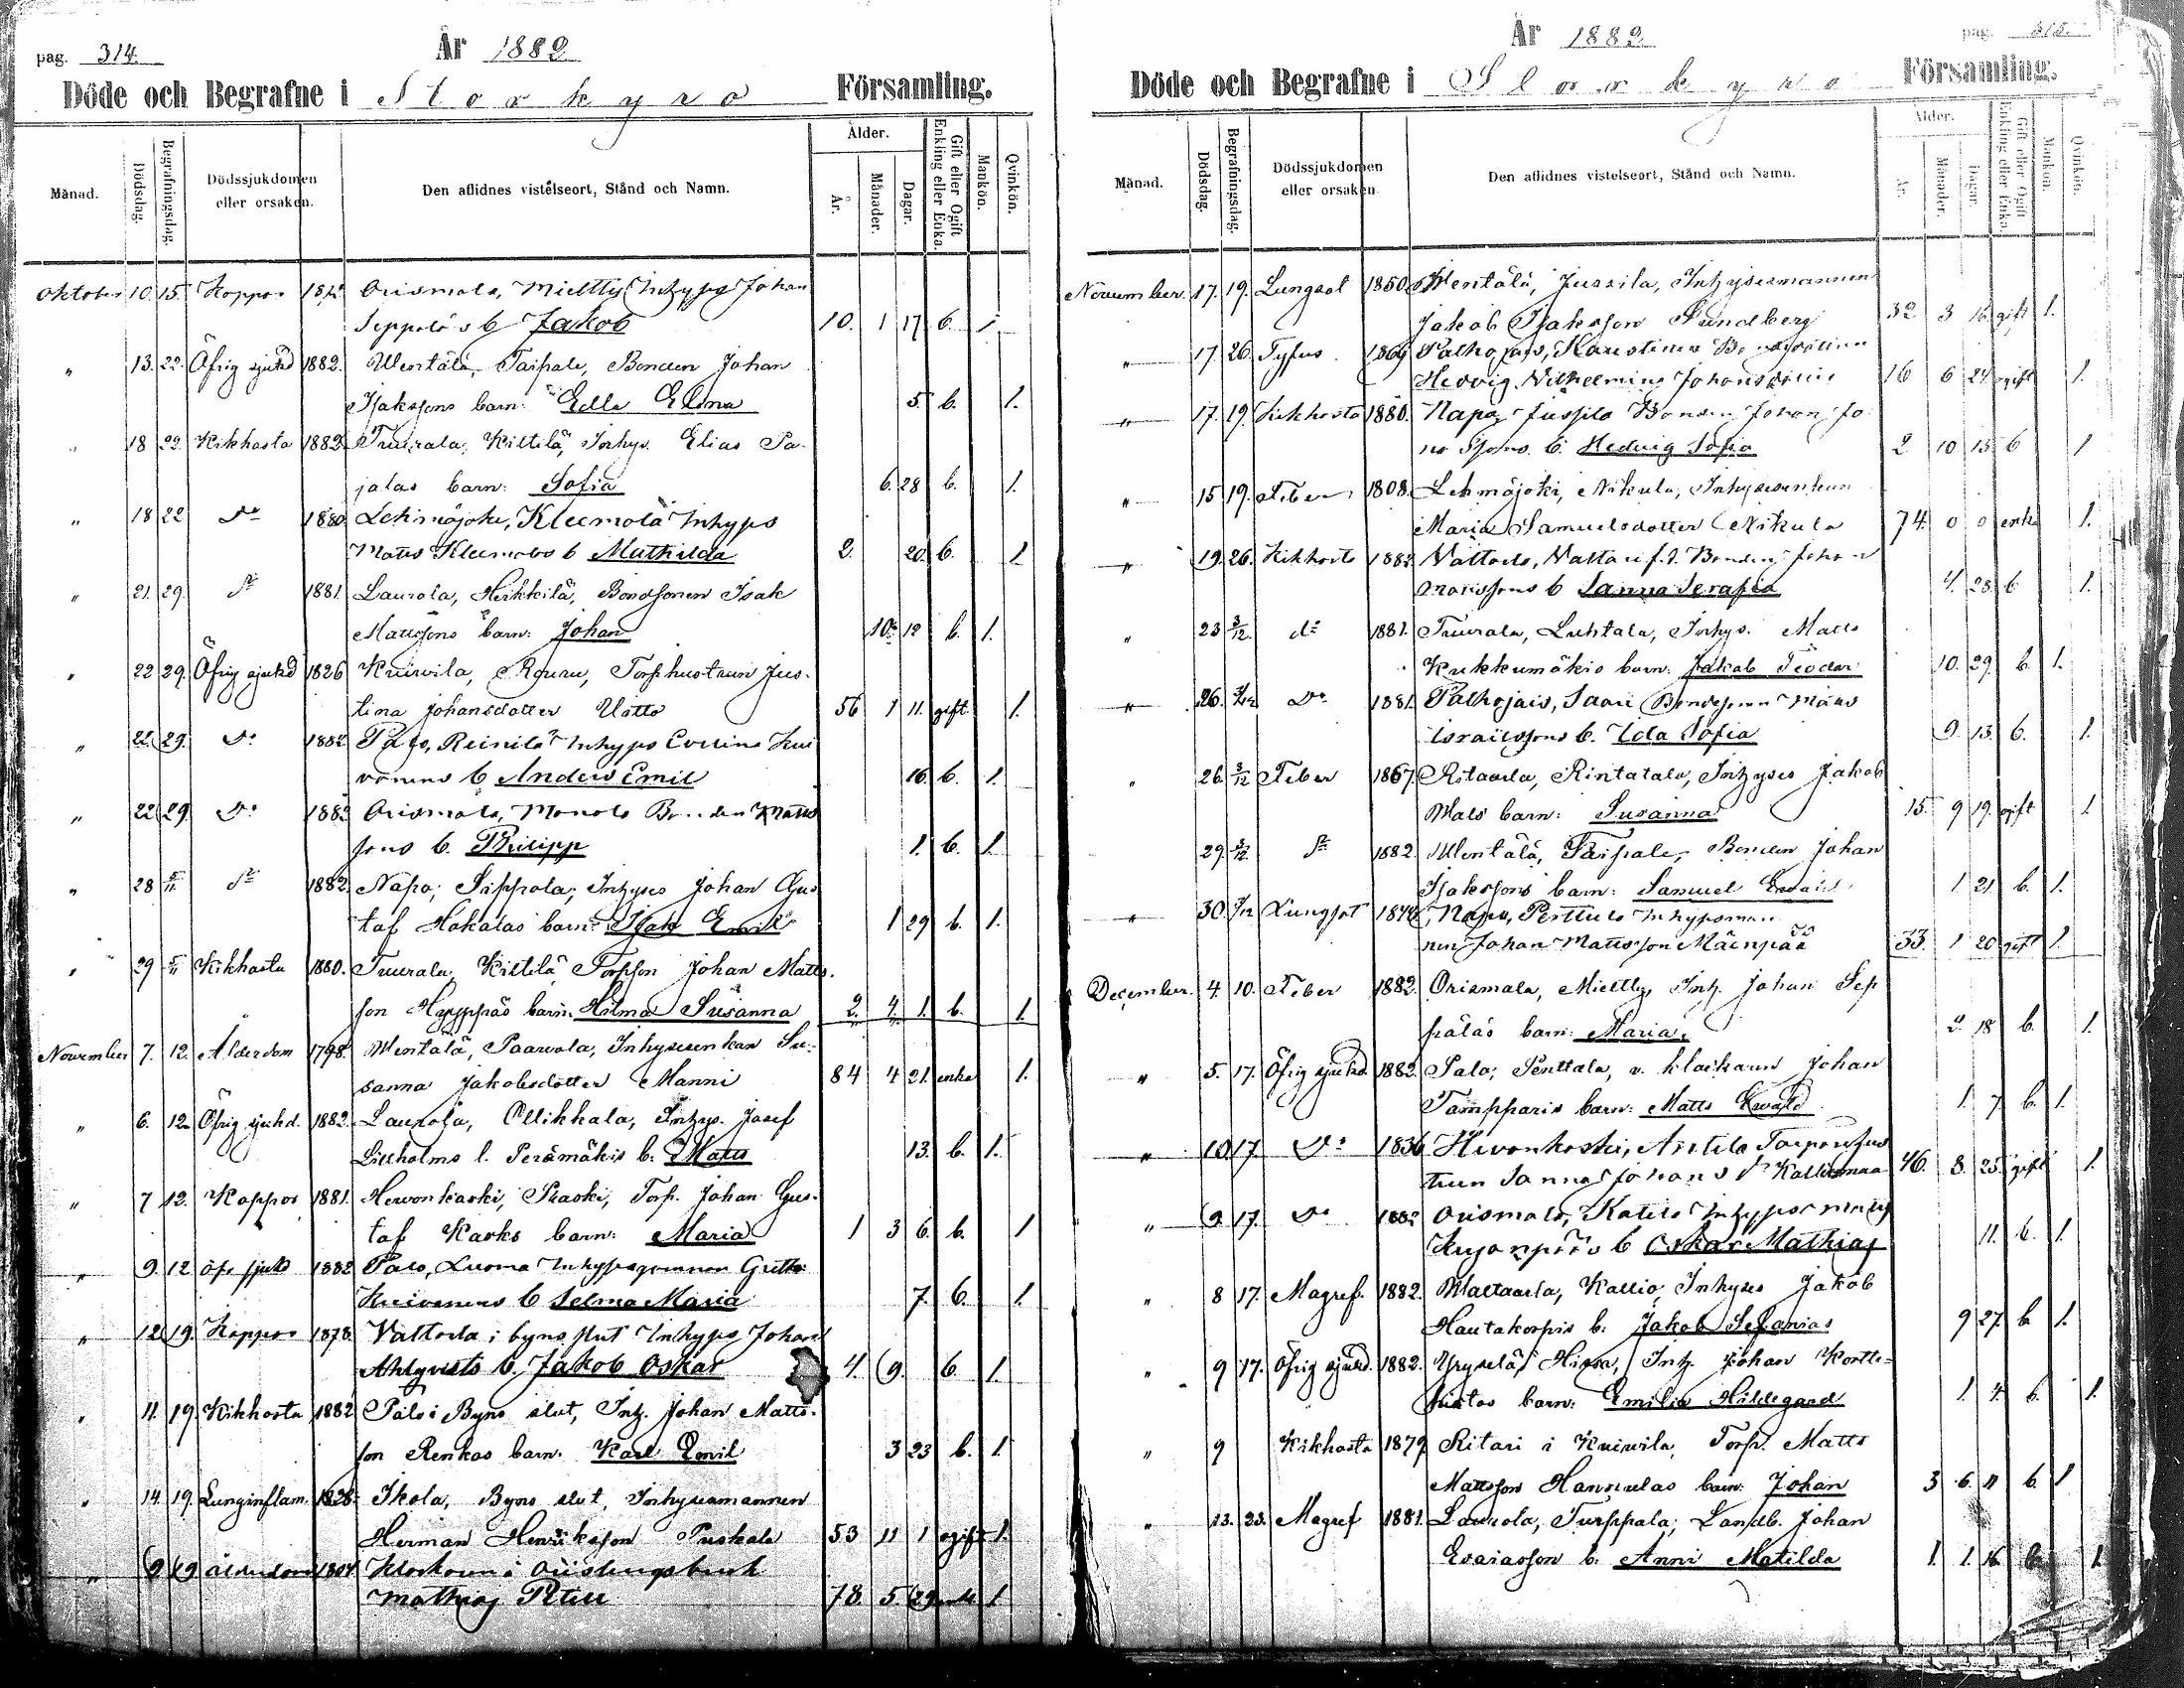 pag. 314.
År 1882
Döde och Begrafne i Storkyro Församling.
Månad.
Dödsdag.
Begrafningsdag.
Dödssjukdomen eller orsaken.
Den aflidnes vistelseort, Stånd och Namn.
Ålder.
År.
Månader.
Dagar.
Gift eller Ogift Enkling eller Enka.
Mankön.
Qvinkön.
Oktober 10. 15. Koppor Orismala, Mieltty Inhyss Johan
Seppeläs b Jakob 10. 1 17 b. 1.
" 13. 22. Öfrig sjukd 1882. Wentälä, Taipale, Bonden Johan
Isakssons barn: Edla Elina 5. b. 1.
" 18 22. Kikhosta 1882. Tuurala, Kiltilä, Inhys. Elias Pa-
jalas barn: Sofia 6. 28 b. 1.
" 18 22 Do 1880. Lehmäjoki, Kleemola Inhyss
Matts Kleemolas b Mathilda 2. 20. b. 1
" 21. 29. do 1881. Laurola, Heikkilä, Bondsonen Isak
Mattssons barn: Johan 10. 12 b. 1.
" 22 29. Öfrig sjukd 1826 Kuivila, Torphustrun Jus-
tina Johansdotter Uitto 56 1 11. gift 1.
" 22. 29. Do 1882 Palo, Reinilä Inhyss Evelina Kui
vanens b Anders Emil 16. b. 1.
" 22 29. Do 1882 Orismala, Monola Bonden Matts
sons b. Philipp 1. b. 1.
" 28 5/11 do 1882. Napo, Sippola, Inhyses Johan Gus
taf Hakalas barn: Isak Emil 1 29 b. 1.
" 29 5/11 Kikhosta 1880. Tuurala, Kiltilä Torpson Johan Matts-
son Hyyppäs barn. Hilma Susanna 2. 4. 1. b. 1.
November 7. 12. Ålderdom 1798. Wentälä, Paavola, Inhysesenkan Su-
sanna Jakobsdotter Manni 84 4 21. enka 1.
" 6. 12 Öfrig sjukd. 1882. Laurola, Ollikkala, Inhys. Josef
Lillholms l. Perämäkis b. Matts 13. b. 1.
" 7 12. Koppor 1881. Hevonkoski, Torp. Johan Gus-
taf Karks barn: Maria 1 3 6. b. 1
" 9. 12 öfr sjukd 1882 Palo, Luoma Inhysesqvinnan Greta
Kuivanens b Selma Maria 7. b. 1.
" 12 19. Koppor 1878. Valtarla i byns slut Inhyss Johan
Ahlqvists b. Jakob Oskar 4. 9. b. 1.
" 11. 19 Kikhosta 1882 Palo i Byns slut, Inh. Johan Matts-
son Renkas barn. Karl Emil 3 23 b. 1.
" 14 19. Lunginflam. 1828. Ikola, Byns slut, Inhysesmannen
Herman Henriksson Puskala 53 11 1 ogift 1.
" 9 19 ålderdom 1804 Klockaren i Orisbergs bruk
Mathias Peteri 78. 5. 29 enkl. 1.
pag. 315.
År 1882
Döde och Begrafne i Storkyro Församling.
Månad.
Dödsdag.
Begrafningsdag.
Dödssjukdomen eller orsaken.
Den aflidnes vistelseort, Stånd och Namn.
Ålder.
År.
Månader.
Dagar.
Gift eller Ogift Enkling eller Enka.
Mankön.
Qvinkön.
November. 17. 19. Lungsot 1850. Wentälä, Jussila, Inhysesmannen
Jakob Isaksson Sundberg 32 3 16. gift 1.
" 17. 26. Tyfus. 1869 Palhojais, Kaustinen
Hedvig Vilhelmina Johansdotter 16 6 24. ogift 1.
" 17. 19. Kikhosta 1880. Napo, Jussila Bonden Johan Jo
nssons b. Hedvig Sofia 2 10 15. b 1
" 15 19. Feber 1808. Lehmäjoki, Nikula, Inhysesenkan
Maria Samuelsdotter Nikula 74. 0 0 enka 1.
" 19. 26. Kikhosta 1882. Valtarla, Bonden Johan
Mattssons b Sanna Serafia 4. 28. b 1.
" 23 3/12. do 1881. Tuurala, Luhtala, Inhys. Matts
Kukkumäkis barn: Jakob Teodor 10. 29. b. 1.
" 26. 3/12 Do 1881. Palhojais, Saari Bondesonen Matts
Israelssons b. Ida Sofia 9. 13. b. 1.
" 26. 3/12 Feber 1867. Ritaarla, Rintatala, Inhyses Jakob
barn: Susanna 15. 9 19. ogift 1.
" 29. 3/12 do 1882. Wentälä, Taipale, Bonden Johan
Isakssons barn: Samuel Evald 1 21. b. 1.
" 30. 3/12 Lungsot 1849 Napo, Perttula Inhysesman
nen Johan Mattsson Mäenpää 33. 1 20 gift 1.
December. 4. 10. Feber 1882. Orismala, Mieltty, Inh. Johan Sep
päläs barn: Maria. 2. 18 b. 1.
" 5. 17. Öfrig sjukd. 1882. Palo, Penttala, v. klockaren Johan
Tampparis barn: Matts Evald 1. 7 b. 1.
" 10 17 Do 1836 Hevonkoski, Anttila Torparehus
trun Sanna Johans dr Kallionmaa 46. 8. 25. gift 1.
" 9. 17. Do 1882 Orismala, Katila
Kujanpääs b Oskar Mathias 11. b. 1.
" 8 17. Magref. 1882. Waltaarla, Kallio, Inhyses Jakob
Hautakorpis b: Jakob Sefanias 9 27 b. 1.
" 9 17. Öfrig sjukd. 1882. Yrysselä, Hissa, Inh. Johan Kortte-
barn: Emilia Hildegard 1. 4. b. 1.
" 9 Kikhosta 1879 Ritari i Kuivila, Torp. Matts
Mattsson Hannulas barn: Johan 3 6. 11 b. 1
" 13. 23. Magref 1881. Laurola, Turppala, Landb. Johan
Esaiasson b. Anni Matilda 1. 1. 16 b. 1.